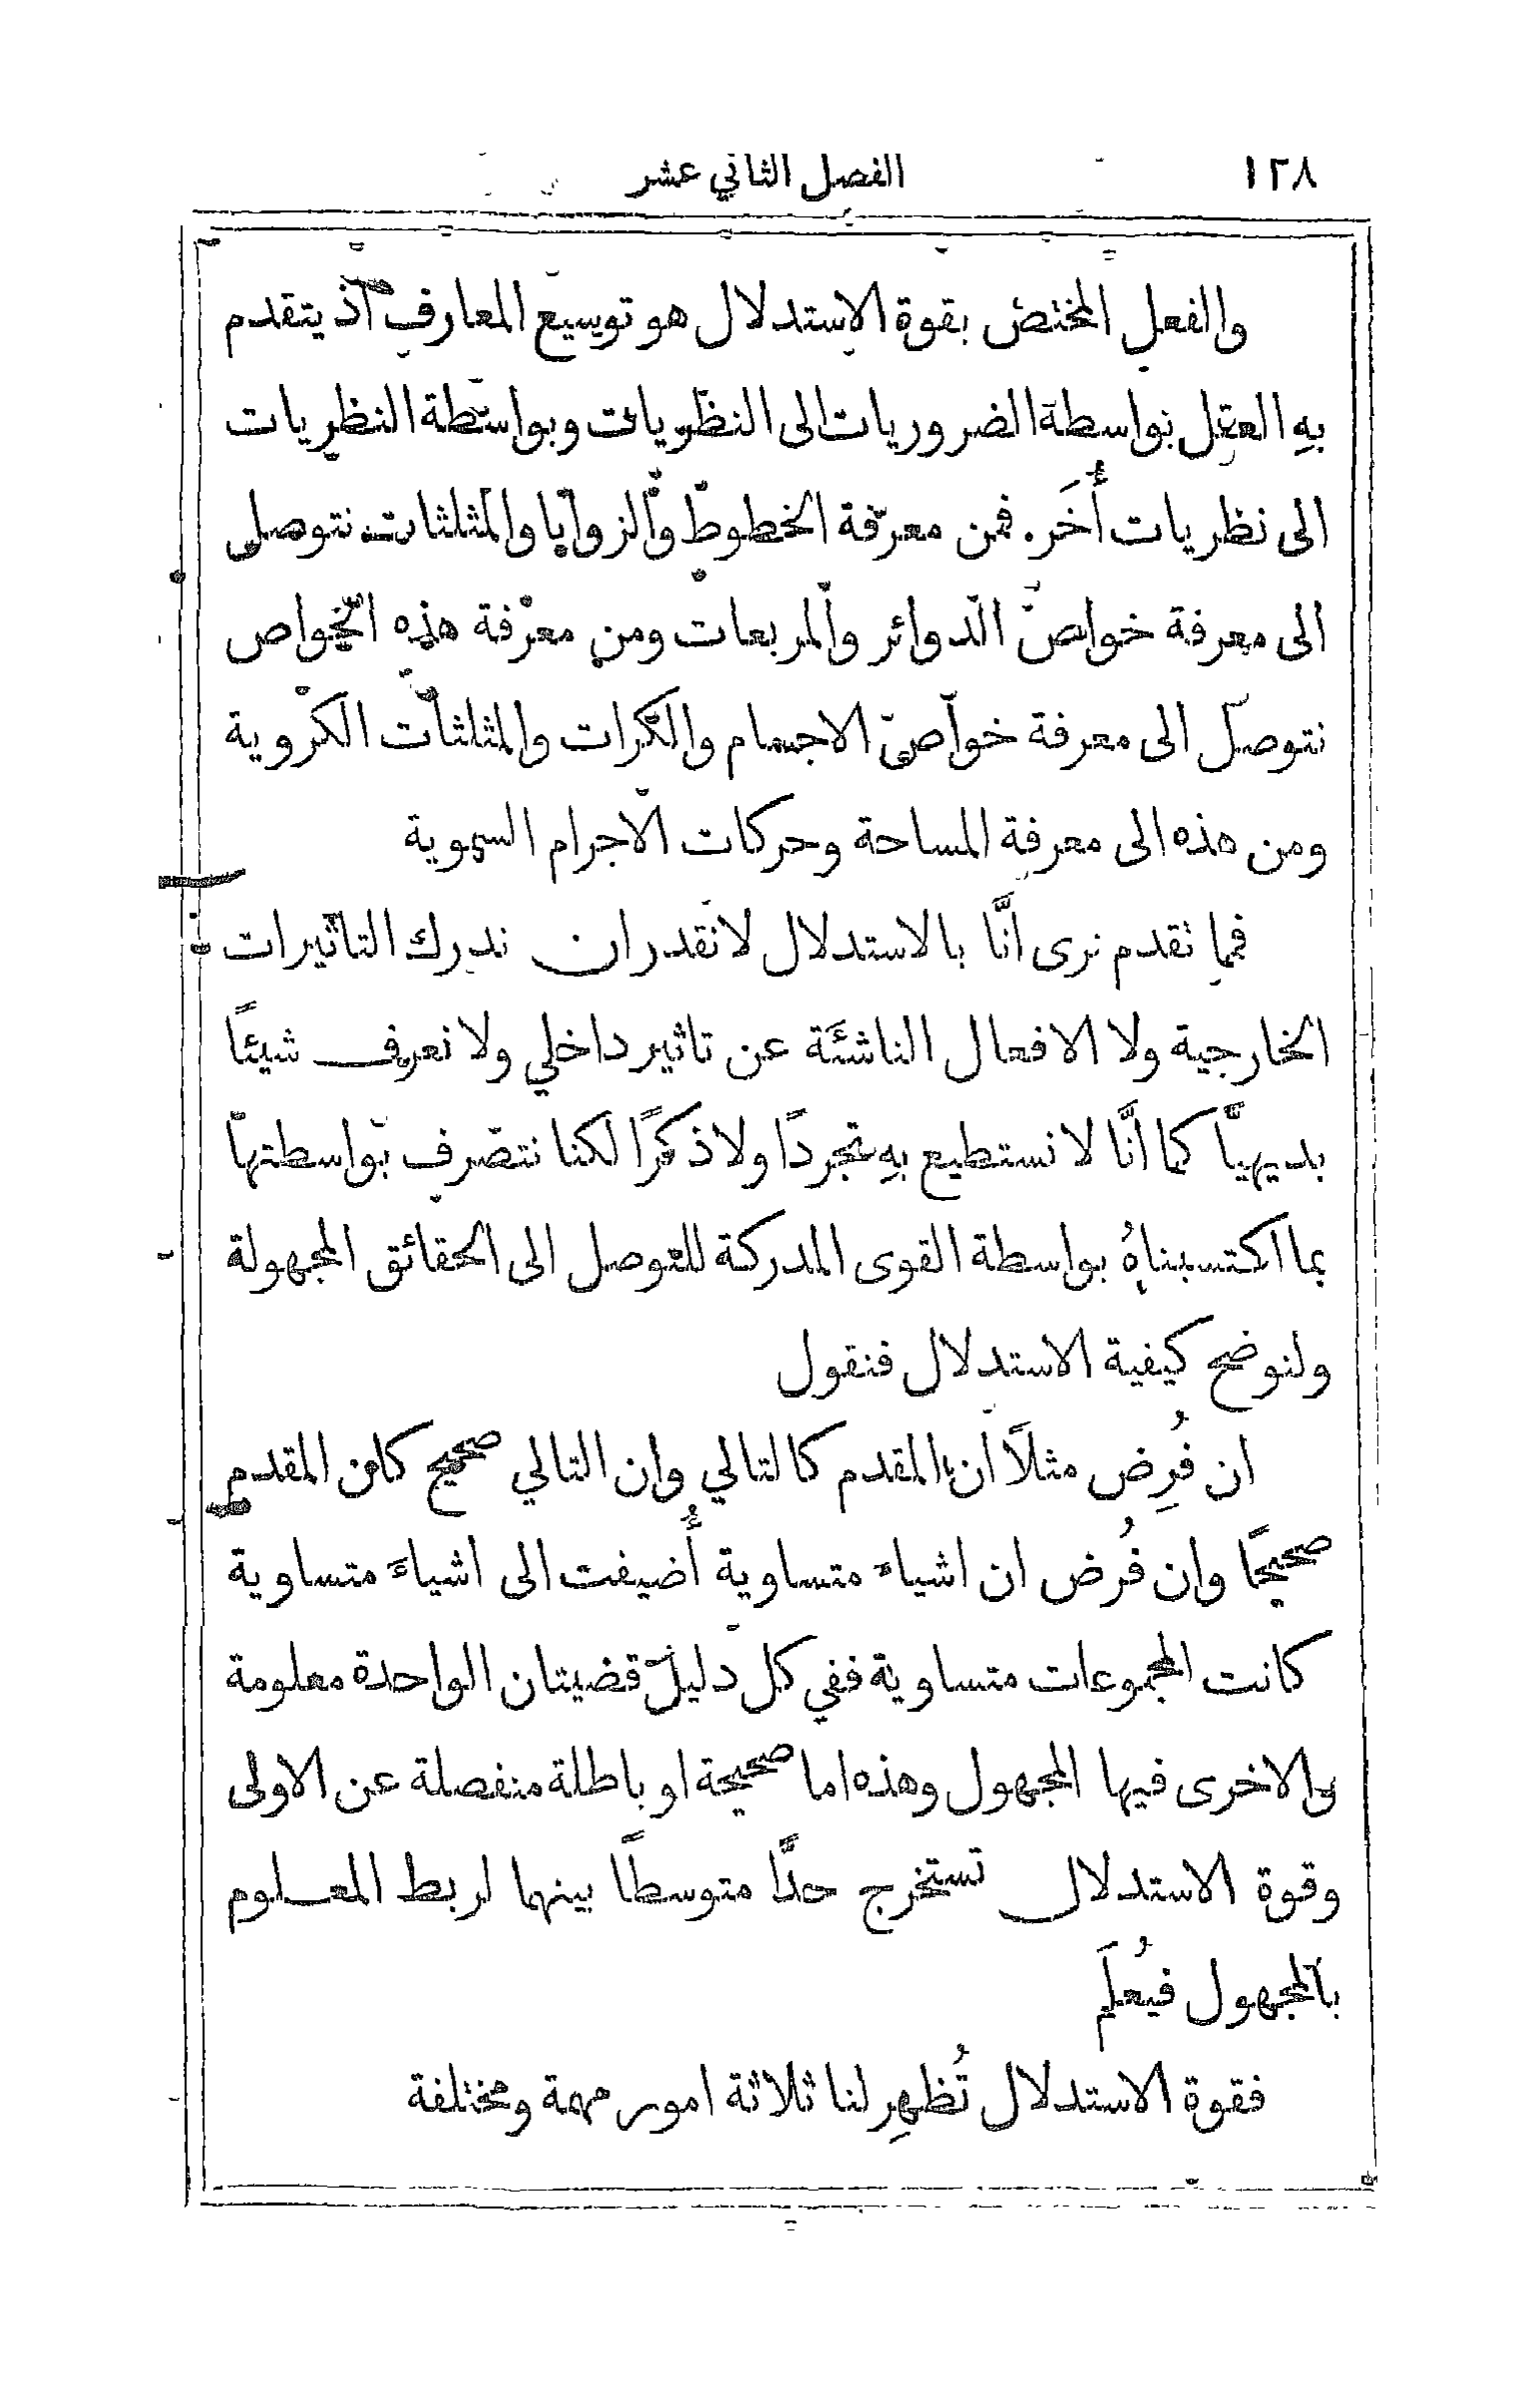 ١٢٨ الفصل الثاني عشر
والفعل المختص بقوة الاستدلال هو توسيع المعارف اذ يتقدم
بهِ العقل بواسطة الضروريات الى النظريات وبواسطة النظريات
الى نظريات أُخَر. فمن معرفة الخطوط والزوايا والمثلثات نتوصل
الى معرفة خواص الدوائر والمربعات ومن معرفة هذه الخواص
نتوصل الى معرفة خواص الاجسام والكرات والمثلثات الكروية
ومن هذه الى معرفة المساحة وحركات الاجرام السموية
فمما تقدم نرى انَّا بالاستدلال لا نقدر ان ندرك التاثيرات
الخارجية ولا الافعال الناشئَة عن تاثير داخلي ولا نعرف شيئًا
بديهيًّا كما انَّا لا نستطيع بهِ تجردًا ولا ذكرًا لكنا نتصرف بواسطتها
بما اكتسبناهُ بواسطة القوى المدركة للتوصل الى الحقائق المجهولة
ولنوضح كيفية الاستدلال فنقول
ان فُرِض مثلاً ان المقدم كالتالي وان التالي صحيح كان المقدم
صحيحًا وان فُرض ان اشياء متساوية أُضيفت الى اشياءَ متساوية
كانت المجموعات متساوية ففي كل دليل قضيتان الواحدة معلومة
والاخرى فيها المجهول وهذه اما صحيحة او باطلة منفصلة عن الاولى
وقوة الاستدلال تستخرج حدًّا متوسطًا بينهما لربط المعلوم
بالمجهول فيُعلَم
فقوة الاستدلال تُظهِر لنا ثلاثة امور مهمة ومختلفة